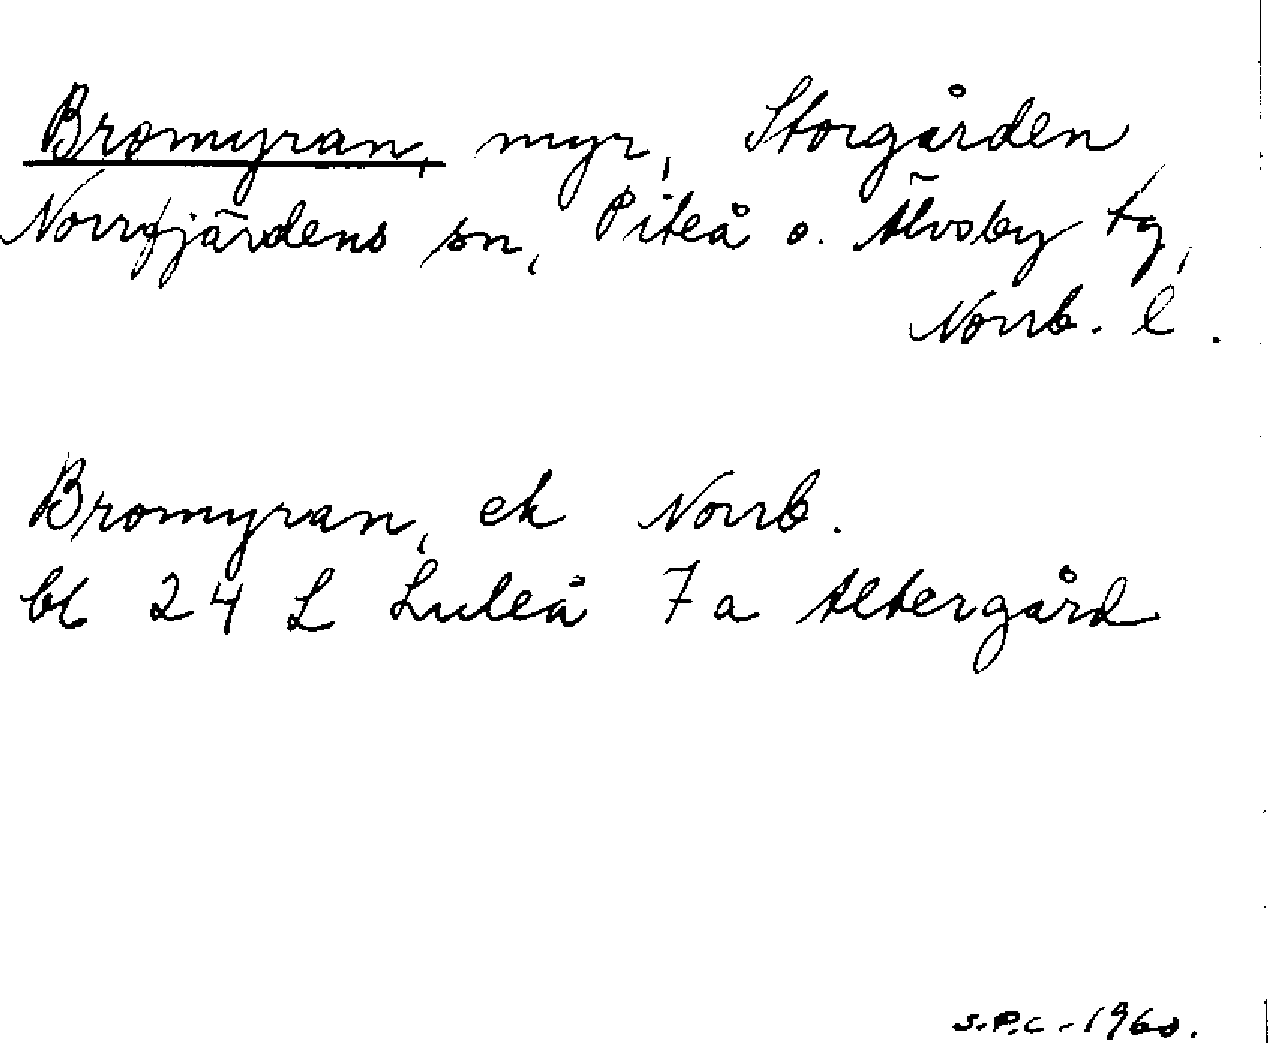 Bromyran, myr, Storgården
Norrfjärdens sn, Piteå o. Älvsby tg,
Norrb. l.
Bromyran, ek Norrb.
bl 24 L Luleå 7a Altergård
S.P.C. - 1960.